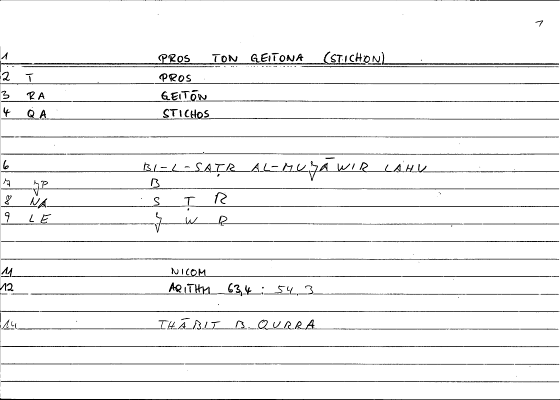 1
1 PROS TON GEITONA (STICHON)
2 T PROS
3 RA GEITŌN
4 QA STICHOS
6 BI-L-SAṬR AL-MUǦĀWIR LAHU
7 B
8 NA S Ṭ R
9 LE Ǧ W R
11 NICOM
12 ARITHM 63,4 : 54,3
14 THĀBIT B. QURRA